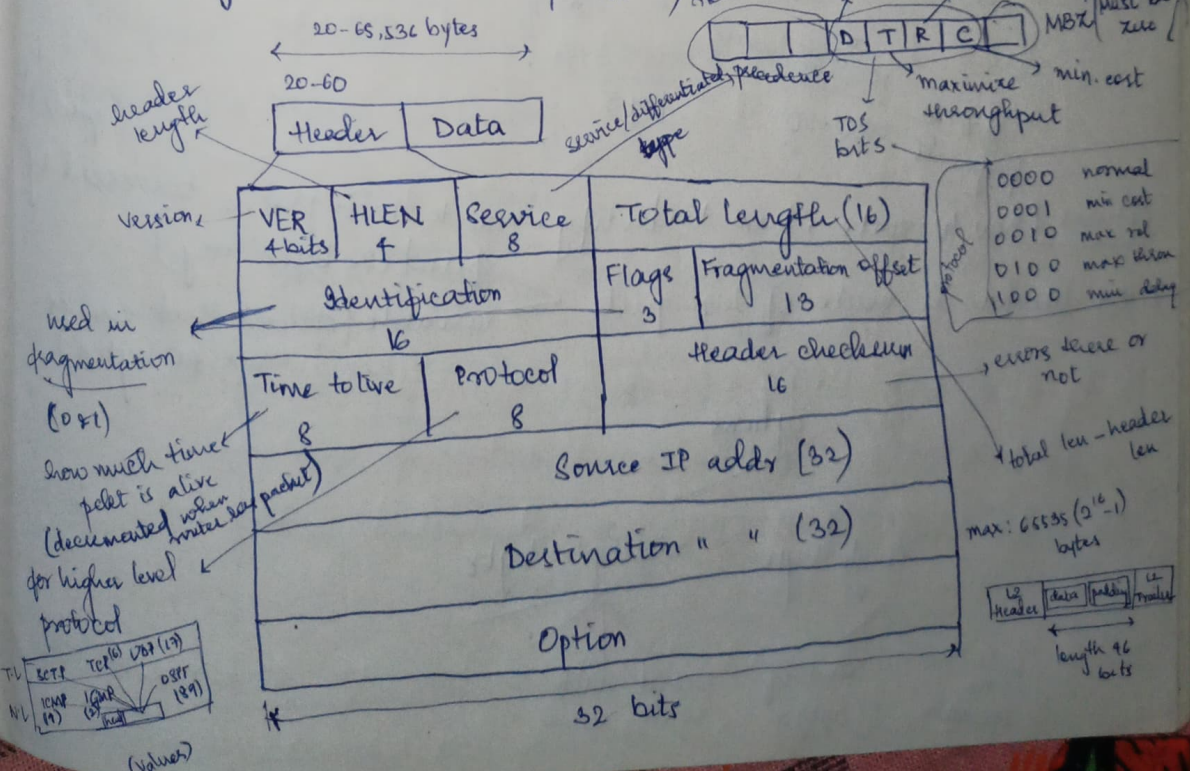 20-65,536 bytes
20-60
Header Data
header length
service/differentiated precedence
type
D T R C
MBZ
maximize throughput
min. cost
TOS bits
0000 normal
0001 min cost
0010 max rel
0100 max
1000 min
protocol
version
VER 4 bits
HLEN 4
Service 8
Total length (16)
Identification 16
Flags 3
Fragmentation offset 13
Time to live 8
Protocol 8
Header checksum 16
Source IP addr (32)
Destination " " (32)
Option
32 bits
used in
fragmentation
how much time
is alive
when
packet)
for higher level
protocol
T.L SCTP TCP (6) (17)
N.L ICMP
(89)
(values)
errors there or
not
total len - header
len
max: 65535 (2^16-1)
bytes
L2 Header data L2
length 46